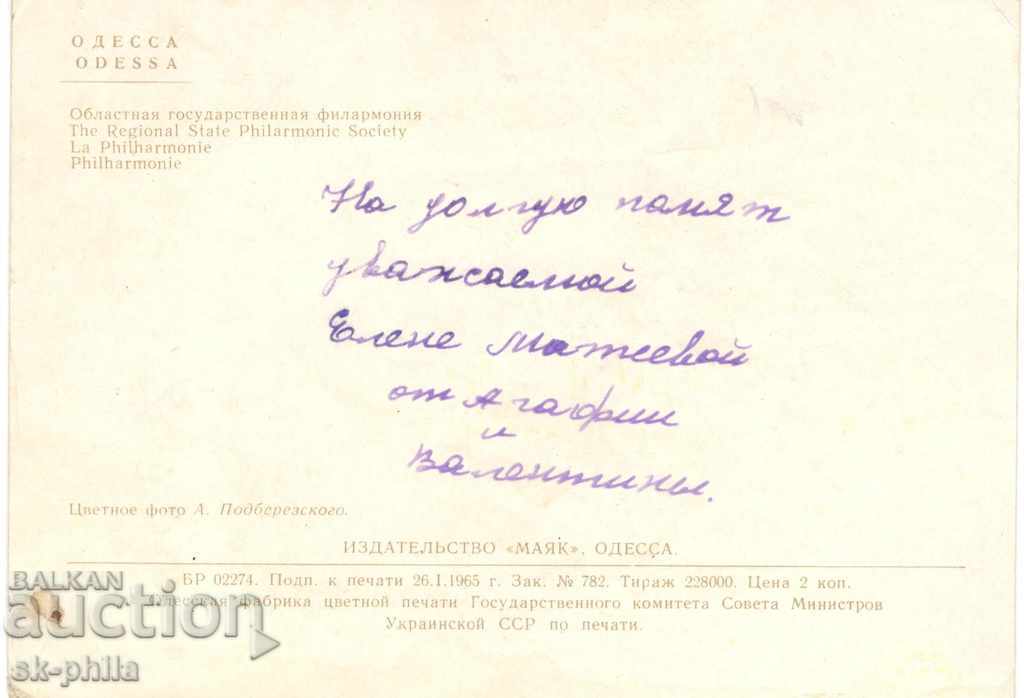 ОДЕССА
ODESSA
Областная государственная филармония
The Regional State Philarmonic Society
La Philharmonie
Philharmonie
На долгую памят
уважаемой
Елене Матеевой
от Агафии
и
Валентины.
Цветное фото А. Подберезского.
ИЗДАТЕЛЬСТВО «МАЯК», ОДЕССА.
БР 02274. Подп. к печати 26.1.1965 г. Зак. № 782. Тираж 228000. Цена 2 коп.
Одесская фабрика цветной печати Государственного комитета Совета Министров
Украинской ССР по печати.
BALKAN
auction
sk-phila